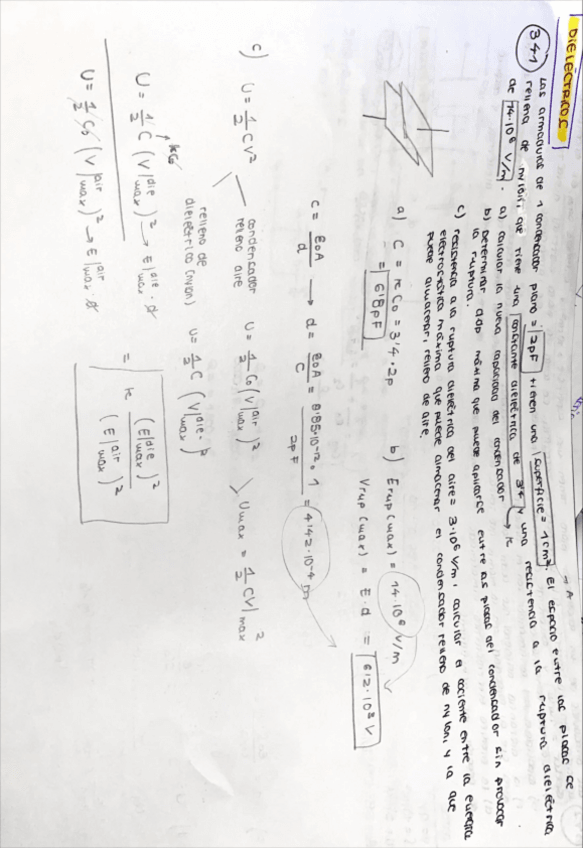 DIELÉCTRICOS
341 Las armaduras de 1 condensador plano = 2pF tienen una superficie = 1cm². El espacio entre las placas se → A
rellena de nylon, que tiene una constante dieléctrica de 3'4 y una resistencia a la ruptura dieléctrica → k
de 14·10⁶ V/m. a) calcular la nueva capacidad del condensador
b) Determinar ddp máxima que puede aplicarse entre las placas del condensador sin provocar
la ruptura.
c) resistencia a la ruptura dieléctrica del aire = 3·10⁶ V/m, calcular el cociente entre la energía
electrostática máxima que puede almacenar el condensador relleno de nylon, y la que
puede almacenar, relleno de aire.
a) C = kC₀ = 3'4·2p
= 6'8pF
b) Erup(max) = 14·10⁶ V/m
Vrup(max) = E·d = 6'2·10³ V
C = ε₀A/d → d = ε₀A/C = 8'85·10⁻¹²·1/2pF = 4'42·10⁻⁴ m
c) U = ½CV²
condensador relleno aire U = ½C₀(V|air max)²
relleno de dieléctrico (nylon) U = ½C(V|die. max)²
Umax = ½CV|²max
U = ½C(V|die max)² → E|die max·d
kC₀
U = ½C₀(V|air max)² → E|air max·d
= k (E|die max)²/(E|air max)²